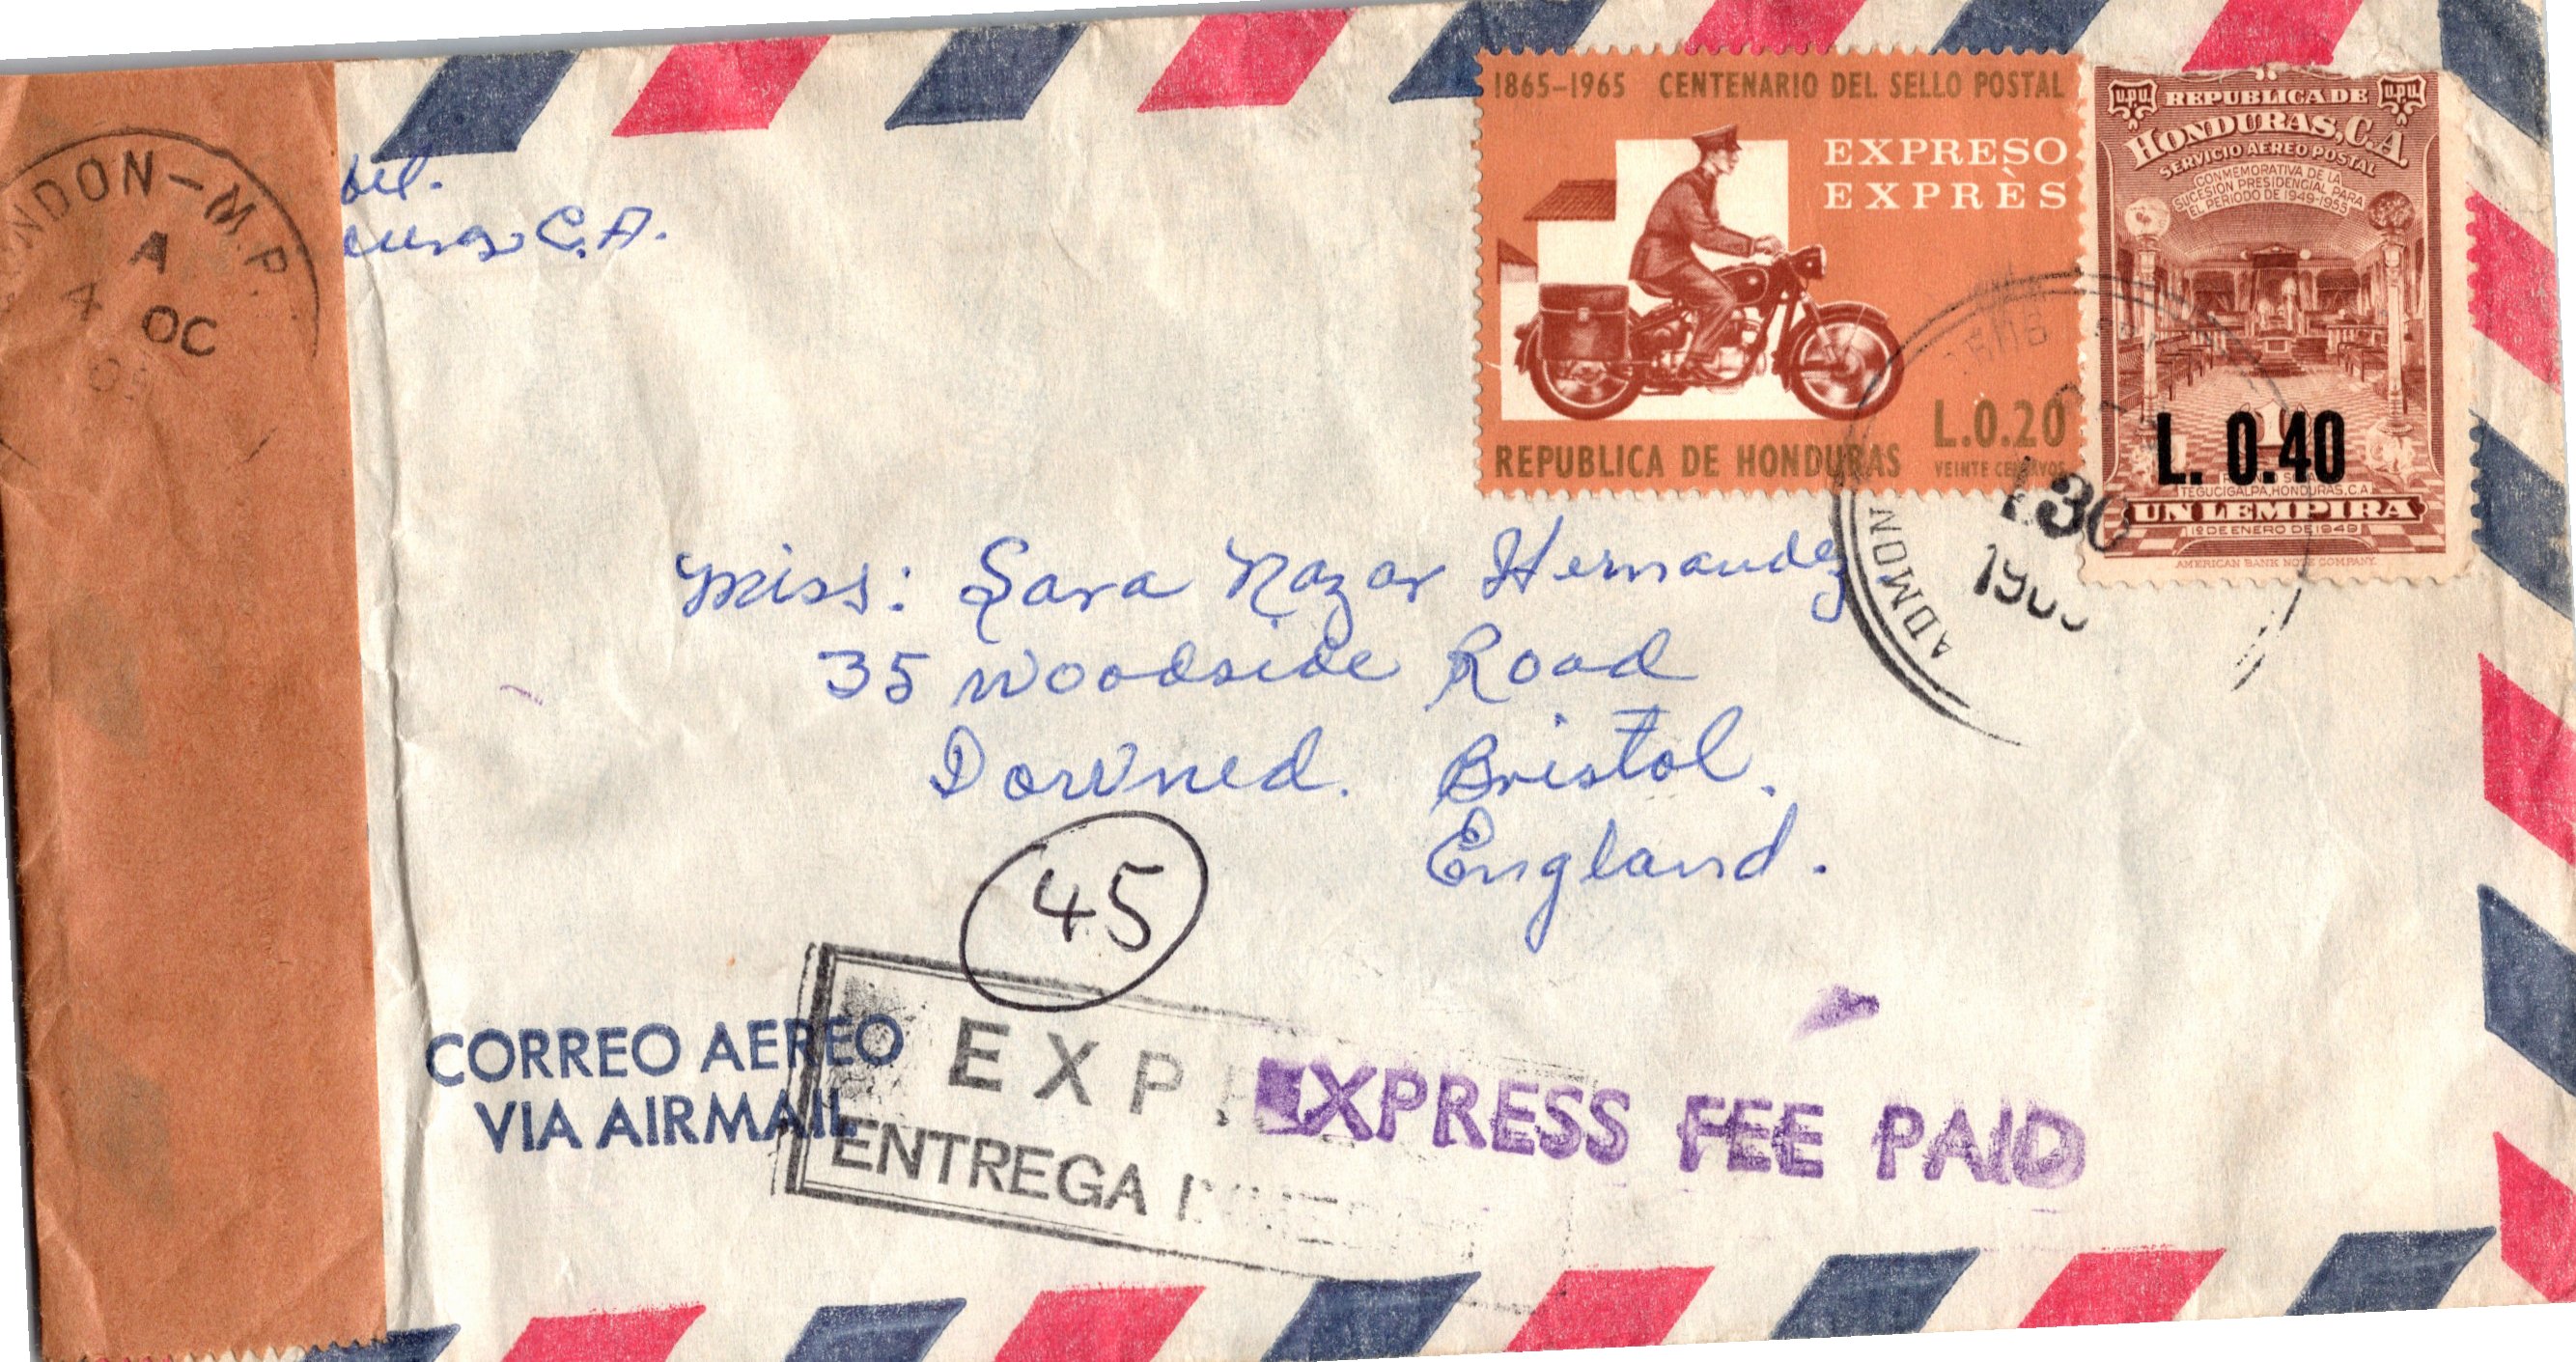 NDON-M.P.
A
4 OC
C.A.
1865-1965 CENTENARIO DEL SELLO POSTAL
EXPRESO
EXPRÈS
L.0.20
VEINTE CENTAVOS
REPUBLICA DE HONDURAS
U.P.U. REPUBLICA DE U.P.U.
HONDURAS, C.A.
SERVICIO AEREO POSTAL
CONMEMORATIVA DE LA
SUCESION PRESIDENCIAL PARA
EL PERIODO DE 1949-1953
L. 0.40
TEGUCIGALPA, HONDURAS, C.A.
UN LEMPIRA
1º DE ENERO DE 1949
AMERICAN BANK NOTE COMPANY.
ADMON
30
Miss: Sara Nazar Hernandez
35 Woodside Road
Downed. Bristol.
England.
45
CORREO AEREO
VIA AIRMAIL
EXPR
ENTREGA
EXPRESS FEE PAID